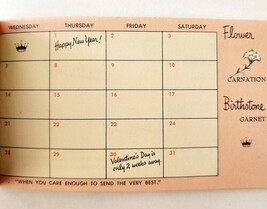 WEDNESDAY THURSDAY FRIDAY SATURDAY
Flower
1 2 3
Happy New Year!
7 8 9 10
CARNATION
Birthstone
14 15 16 17
GARNET
21 22 23 24
28 29 30 31
Valentine's Day is
only 2 weeks away
"WHEN YOU CARE ENOUGH TO SEND THE VERY BEST."